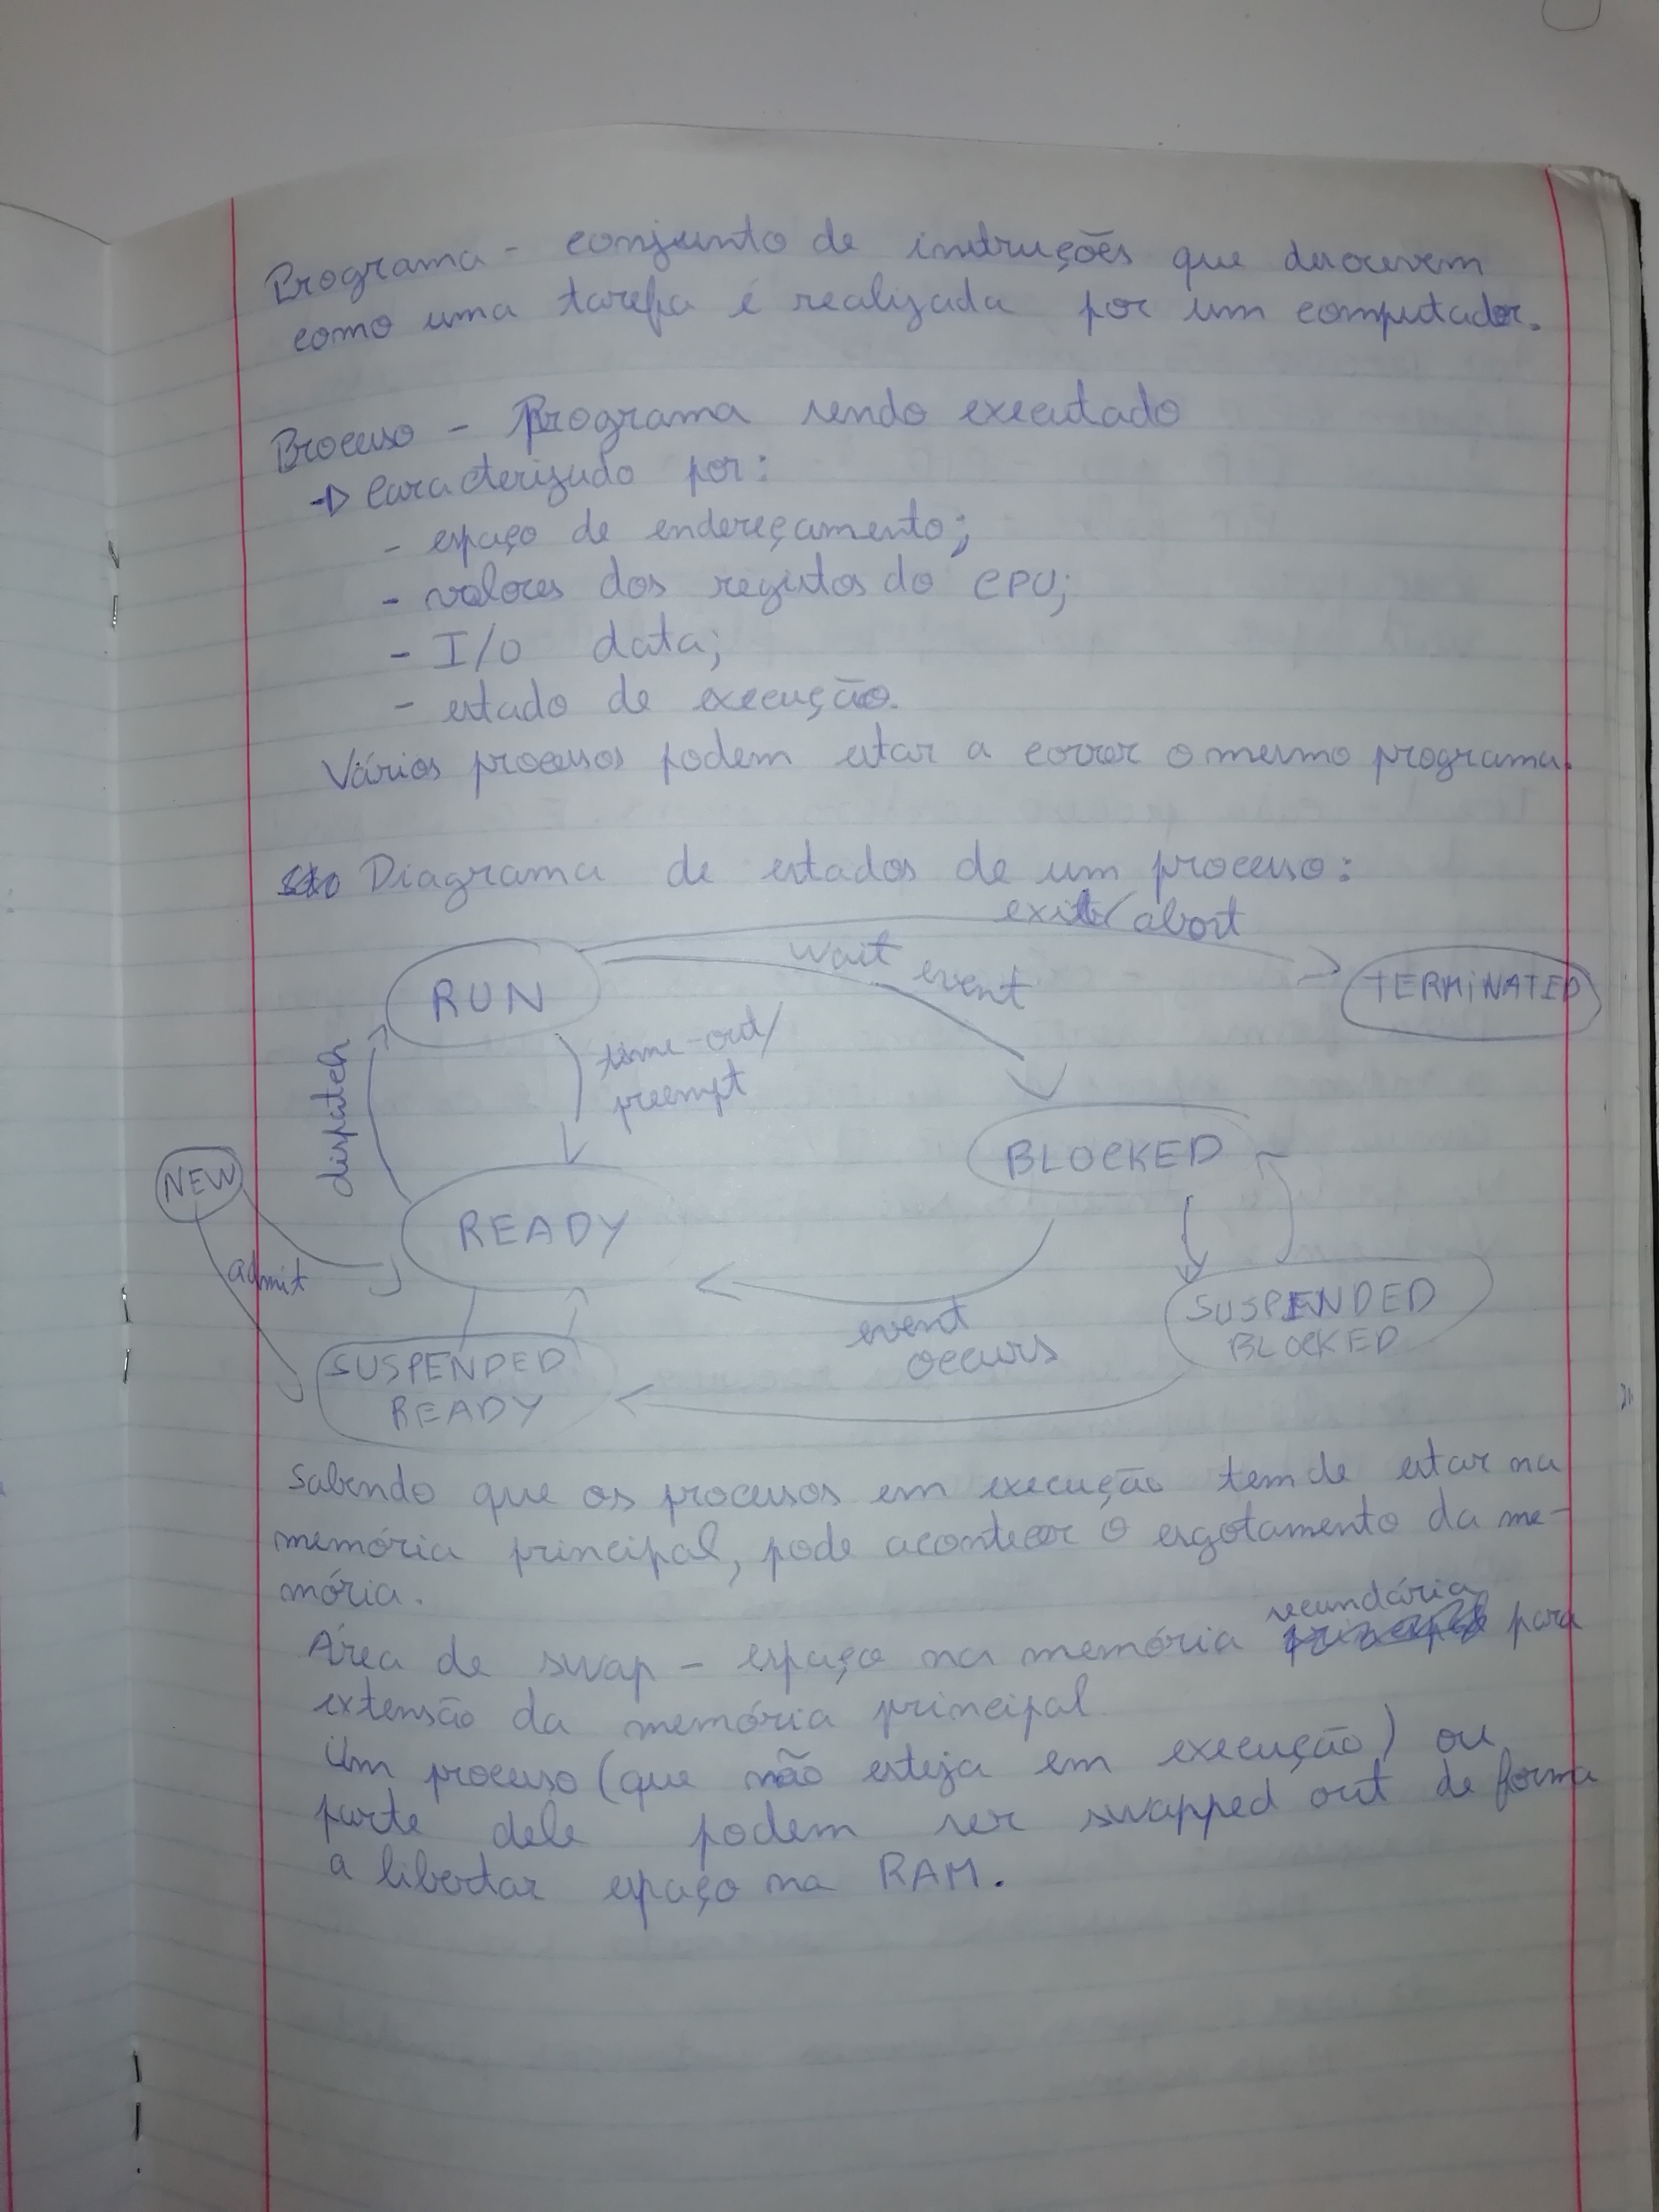 Programa - conjunto de instruções que descrevem
como uma tarefa é realizada por um computador.
Processo - Programa sendo executado
→ Caracterizado por:
- espaço de endereçamento;
- valores dos registos do CPU;
- I/O data;
- estado de execução.
Vários processos podem estar a correr o mesmo programa.
Diagrama de estados de um processo:
exit/abort
wait event
RUN
TERMINATED
time-out/
preempt
dispatch
BLOCKED
NEW
READY
admit
SUSPENDED
BLOCKED
event
occurs
SUSPENDED
READY
Sabendo que os processos em execução tem de estar na
memória principal, pode acontecer o esgotamento da me-
mória.
secundária
Área de swap - espaço na memória para
extensão da memória principal.
Um processo (que não esteja em execução) ou
parte dele podem ser swapped out de forma
a libertar espaço na RAM.